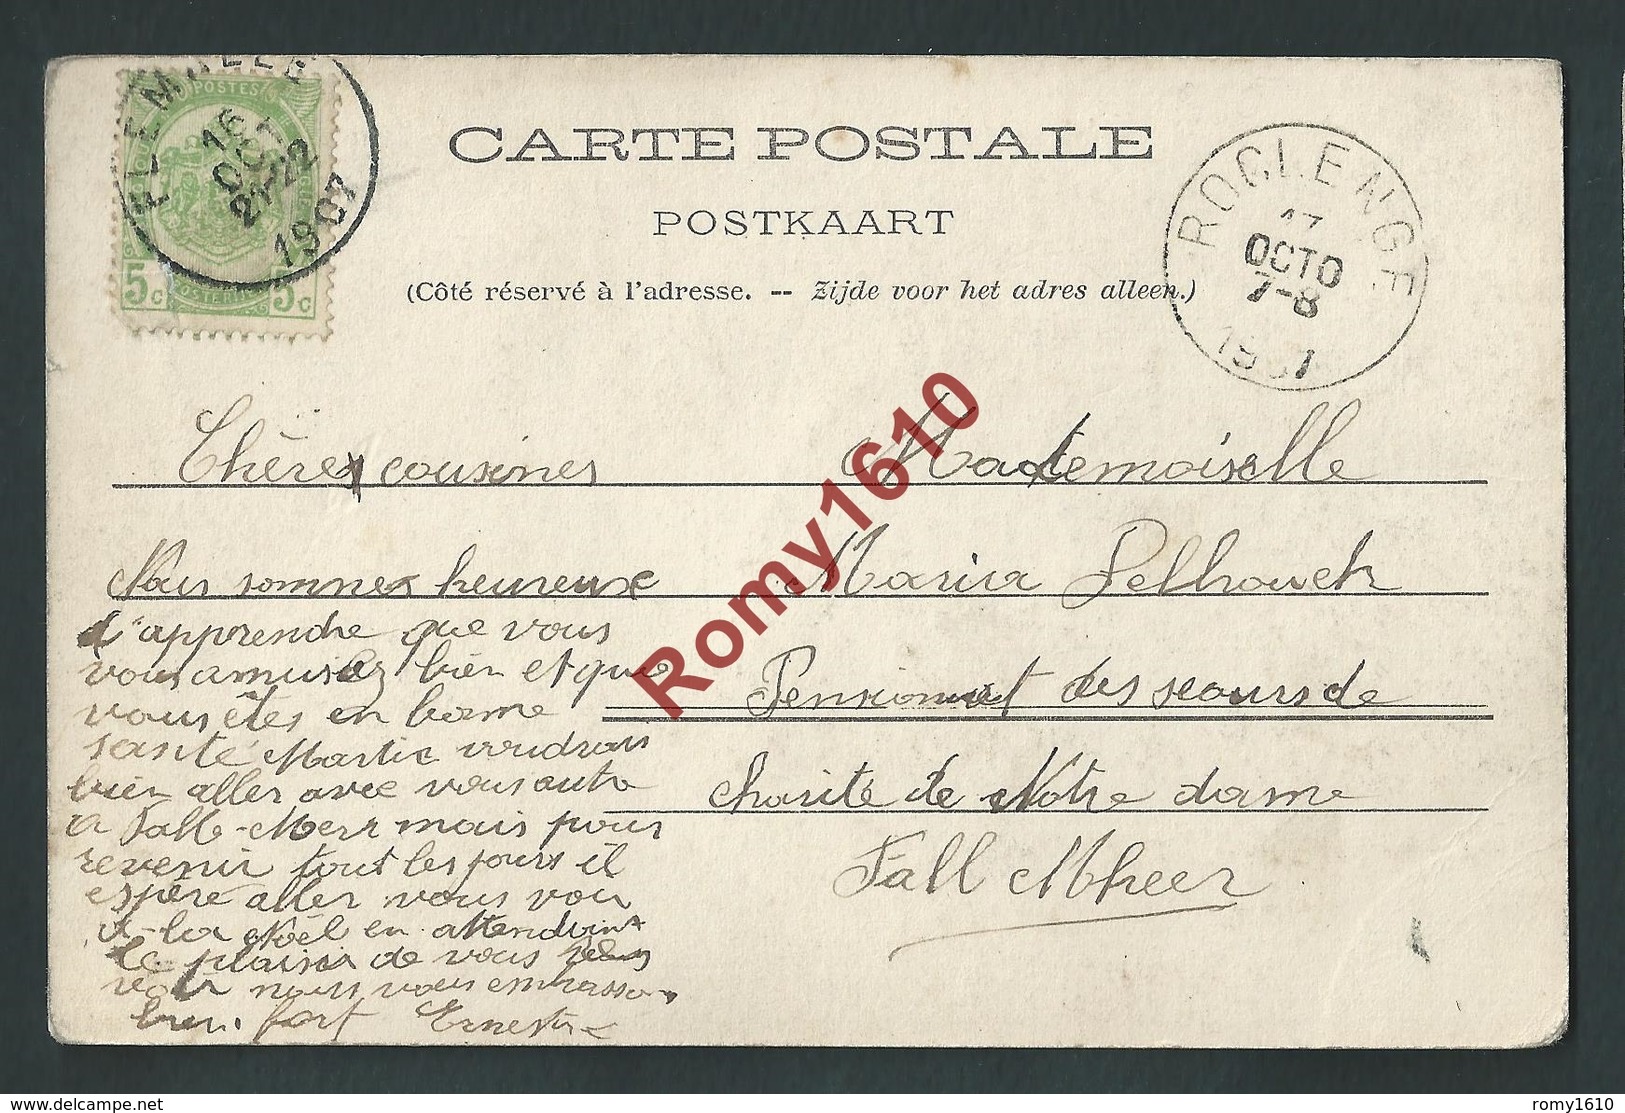 FLÉMALLE
16
OCT
21-22
1907
POSTES
5c 5c
CARTE POSTALE
POSTKAART
(Côté réservé à l'adresse. -- Zijde voor het adres alleen.)
ROCLENGE
17
OCTO
7-8
1907
Chères cousines
Nous sommes heureuse
d'apprendre que vous
vous amusez bien et que
vous êtes en bonne
santé Martie voudrais
bien aller avec vous auto
a Fall-Meer mais pour
revenir tout les jours il
espère aller vous voir
a la Noël en attendant
le plaisir de vous
voir nous vous embrassons
bien fort Ernestine
Mademoiselle
Maria Pelhouck
Pensionnat des seours de
charité de Notre dame
Fall Mheer
Romy1610
delcampe.net
romy1610